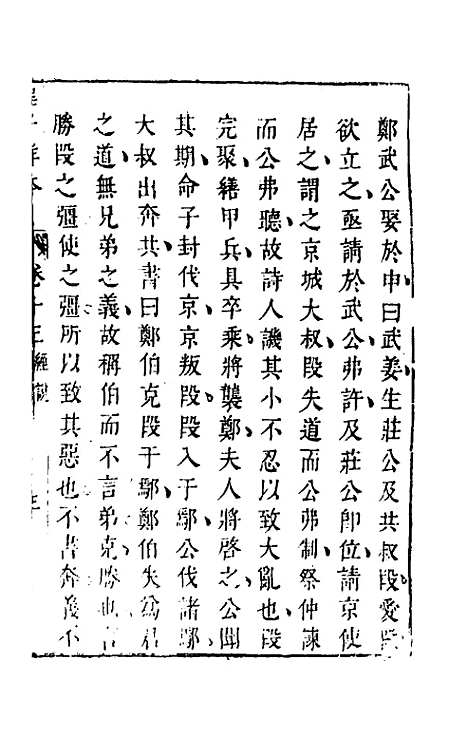 鄭武公娶於申曰武姜生莊公及共叔段愛段
欲立之亟請於武公弗許及莊公卽位請京使
居之謂之京城大叔段失道而公弗制祭仲諫
而公弗聽故詩人譏其小不忍以致大亂也段
完聚繕甲兵具卒乘將襲鄭夫人將啓之公聞
其期命子封伐京京叛段段入于鄢公伐諸鄢
大叔出奔共書曰鄭伯克段于鄢鄭伯失爲君
之道無兄弟之義故稱伯而不言弟克勝也言
勝段之彊使之彊所以致其惡也不書奔義不
卷十三 經說